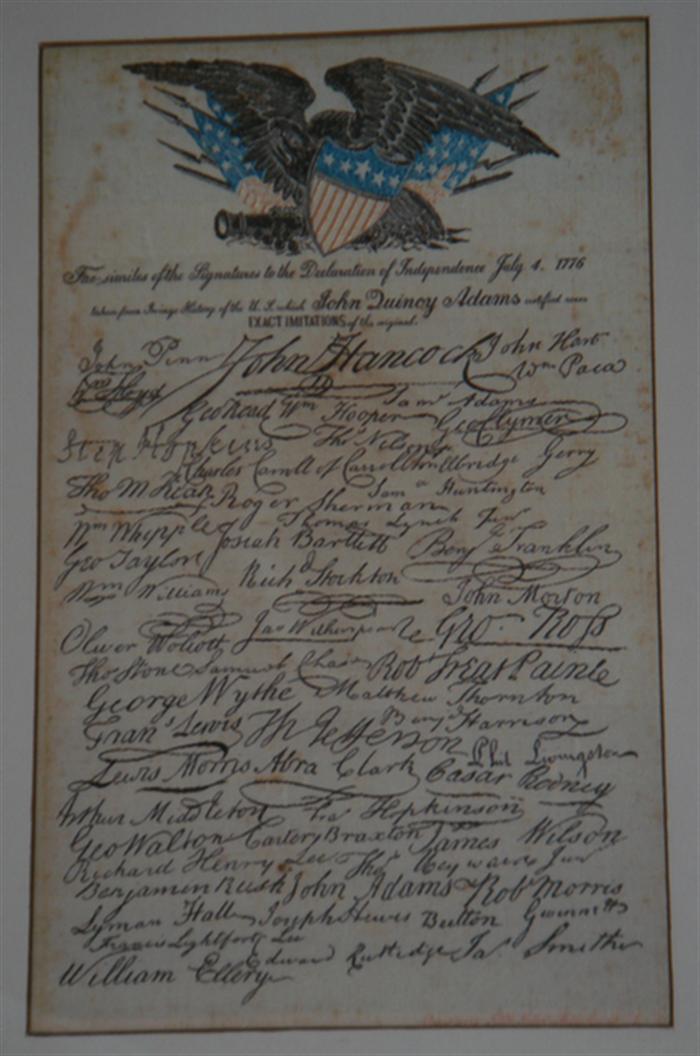 Fac-similes of the Signatures to the Declaration of Independence July 4. 1776
taken from Image History of the U.S. which John Quincy Adams certified were
EXACT IMITATIONS of the original.
John Penn John Hancock John Hart
Wm Floyd Wm Paca
Geo Read Wm Hooper Saml Adams Geo Clymer
Step Hopkins Thos Nelson jr
Charles Carroll of Carrollton Elbridge Gerry
Tho M Kean Roger Sherman Saml Huntington
Wm Whipple Thomas Lynch Junr
Geo Taylor Josiah Bartlett Benj Franklin
Wm Williams Richd Stockton John Morton
Oliver Wolcott Jno Witherspoon Geo. Ross
Thos Stone Samuel Chase Robt Treat Paine
George Wythe Matthew Thornton
Frans Lewis Th Jefferson Benj Harrison
Lewis Morris Abra Clark Phil Livingston
Cæsar Rodney
Arthur Middleton Fras Hopkinson
Geo Walton Carter Braxton James Wilson
Richard Henry Lee Thos Heyward Junr
Benjamin Rush John Adams Robt Morris
Lyman Hall Joseph Hewes Button Gwinnett
Francis Lightfoot Lee
William Ellery Edward Rutledge Jas Smith